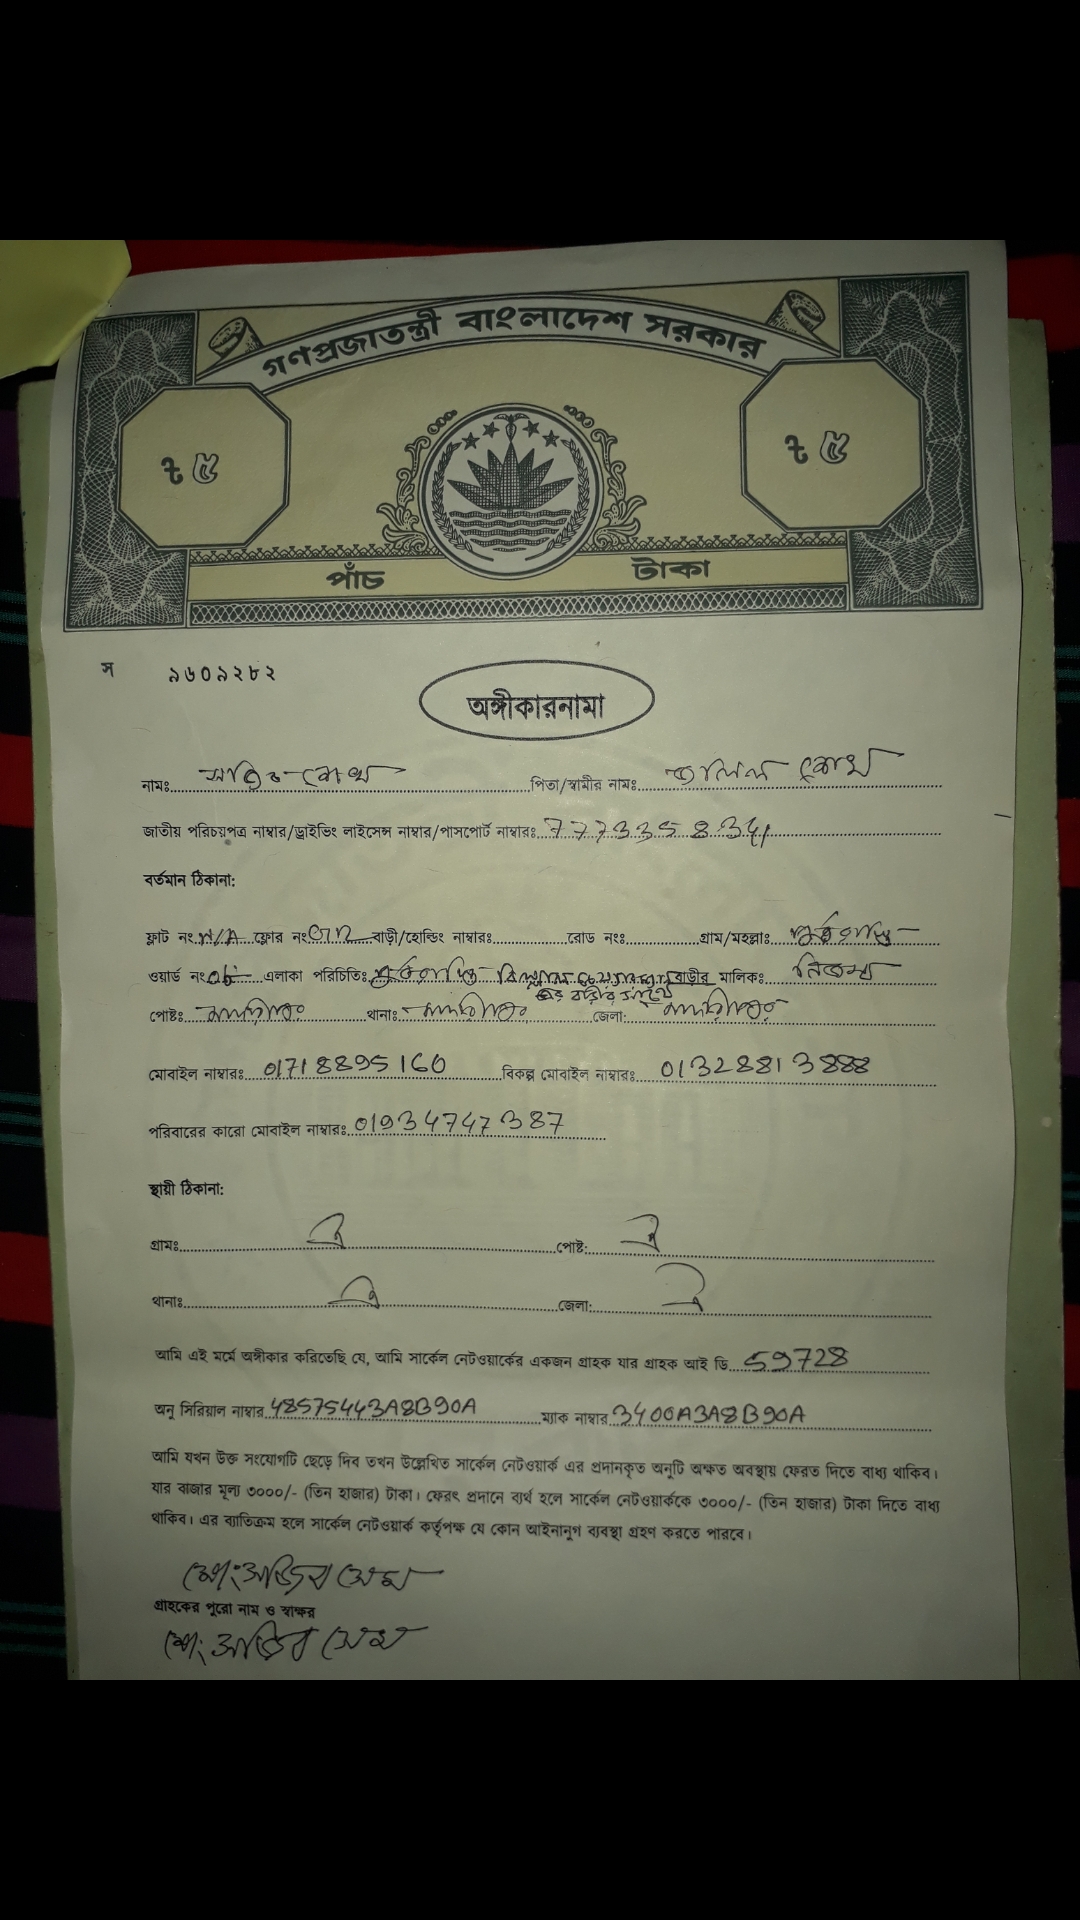 গণপ্রজাতন্ত্রী বাংলাদেশ সরকার
৳ ৫ ৳ ৫
পাঁচ টাকা
স ৯৬০৯২৮২
অঙ্গীকারনামা
নামঃ পিতা/স্বামীর নামঃ
জাতীয় পরিচয়পত্র নাম্বার/ড্রাইভিং লাইসেন্স নাম্বার/পাসপোর্ট নাম্বারঃ
বর্তমান ঠিকানা:
ফ্লাট নং N/A ফ্লোর নং বাড়ী/হোল্ডিং নাম্বারঃ রোড নংঃ গ্রাম/মহল্লাঃ
ওয়ার্ড নং এলাকা পরিচিতিঃ বাড়ীর মালিকঃ নিজস্ব
এর বাড়ির সাথে
পোষ্টঃ মাদারীপুর থানাঃ মাদারীপুর জেলা: মাদারীপুর
মোবাইল নাম্বারঃ 01718895160 বিকল্প মোবাইল নাম্বারঃ 01328813888
পরিবারের কারো মোবাইল নাম্বারঃ 01934747387
স্থায়ী ঠিকানা:
গ্রামঃ ঐ পোষ্ট: ঐ
থানাঃ ঐ জেলা: ঐ
আমি এই মর্মে অঙ্গীকার করিতেছি যে, আমি সার্কেল নেটওয়ার্কের একজন গ্রাহক যার গ্রাহক আই ডি 59728
অনু সিরিয়াল নাম্বার 48575443A8B90A ম্যাক নাম্বার 3400A3A8B90A
আমি যখন উক্ত সংযোগটি ছেড়ে দিব তখন উল্লেখিত সার্কেল নেটওয়ার্ক এর প্রদানকৃত অনুটি অক্ষত অবস্থায় ফেরত দিতে বাধ্য থাকিব।
যার বাজার মূল্য ৩০০০/- (তিন হাজার) টাকা। ফেরৎ প্রদানে ব্যর্থ হলে সার্কেল নেটওয়ার্ককে ৩০০০/- (তিন হাজার) টাকা দিতে বাধ্য
থাকিব। এর ব্যতিক্রম হলে সার্কেল নেটওয়ার্ক কর্তৃপক্ষ যে কোন আইনানুগ ব্যবস্থা গ্রহণ করতে পারবে।
গ্রাহকের পুরো নাম ও স্বাক্ষর